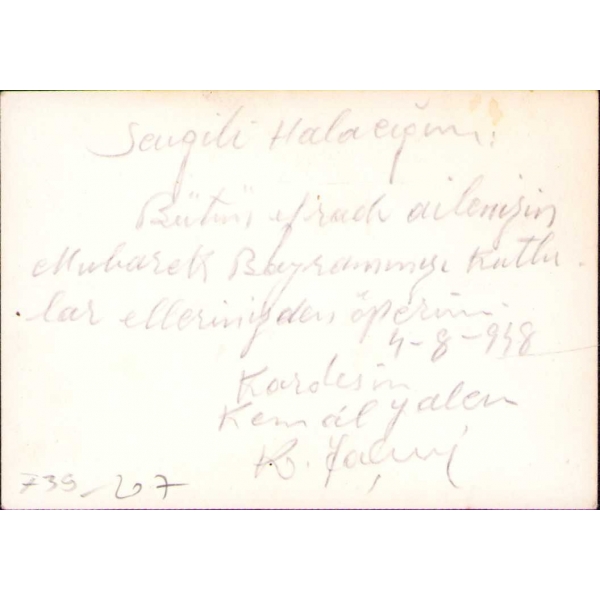 Sevgili Halacığım:
Bütün efradı ailenizin
Mubarek Bayramınızı Kutlu-
lar ellerinizden öperim.
4-8-948
Kardesin
Kemâl Yalçın
K. Yalçın
739-207